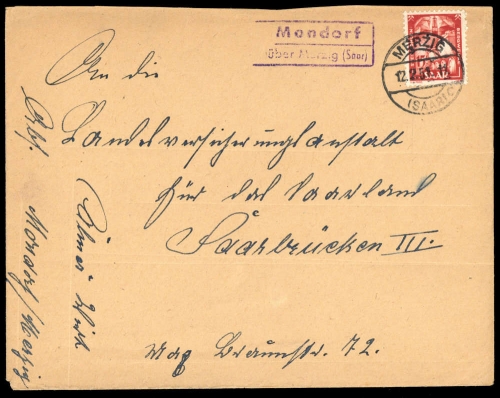 Mondorf
über Merzig (Saar)
MERZIG
(SAAR) C
SAAR
An die
Landesversicherungsanstalt
für das Saarland
Saarbrücken III.
Mag Braunstr. 72.
Abs.
Mondorf/Merzig